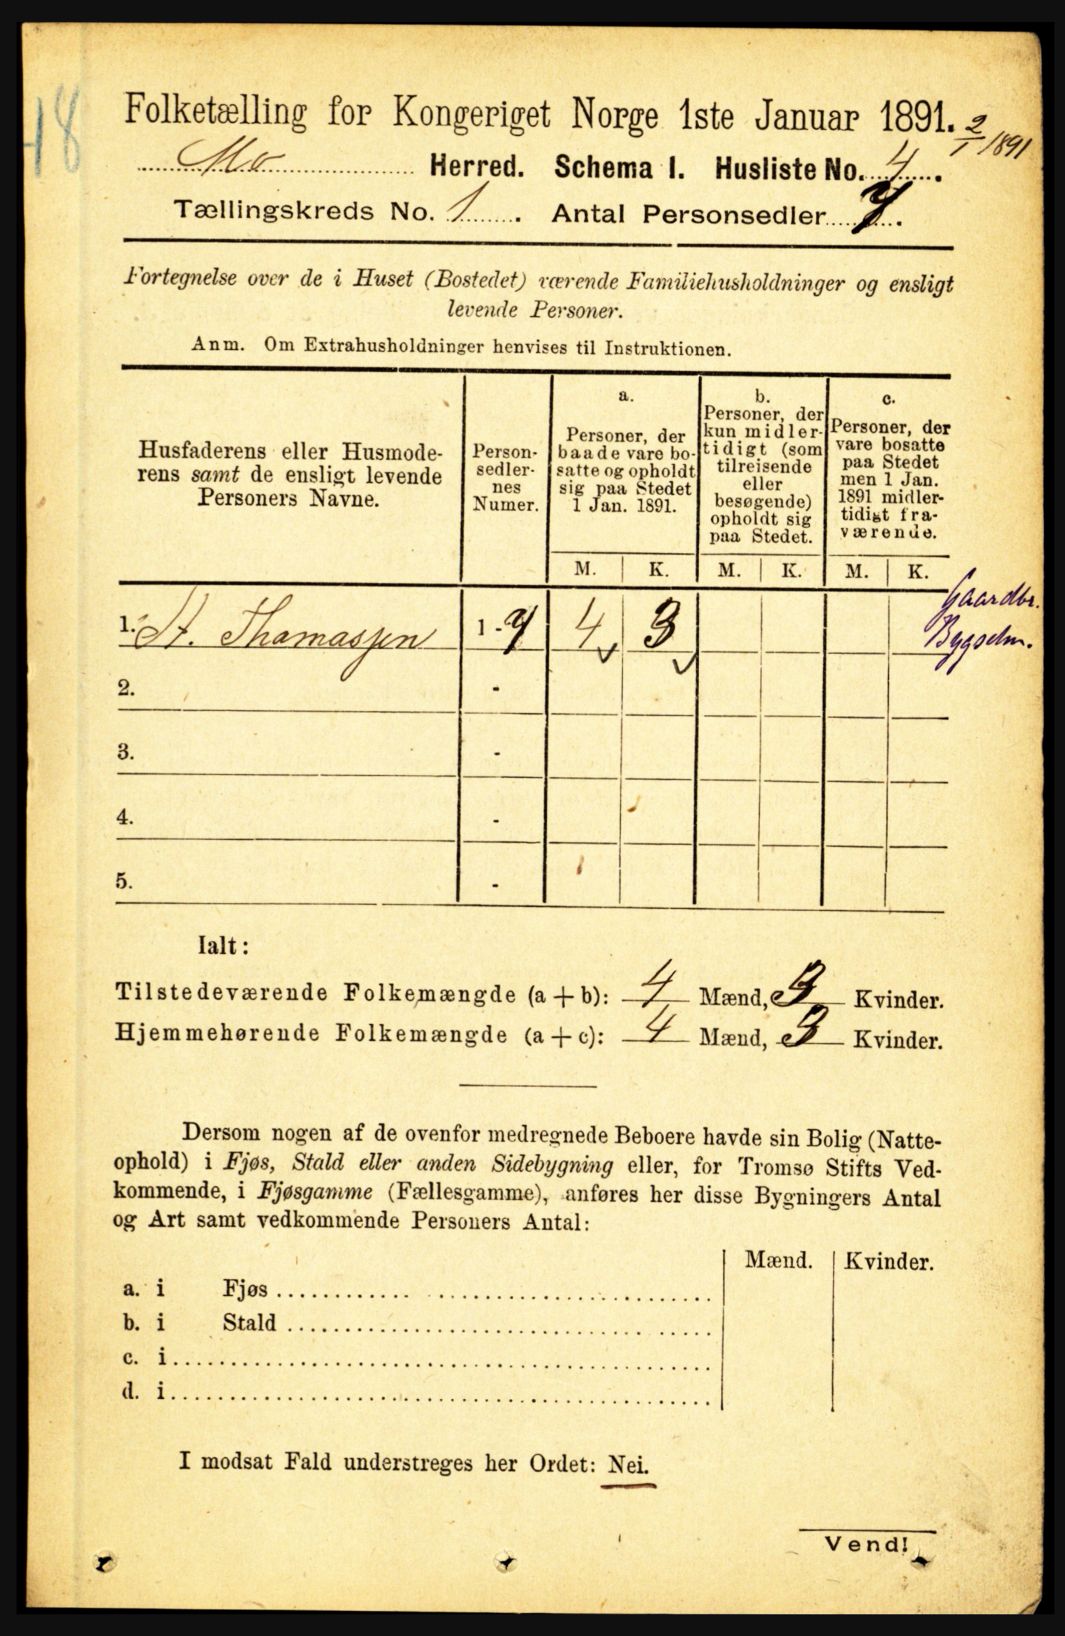 48
Folketælling for Kongeriget Norge 1ste Januar 1891.
2/1 1891
Mo Herred. Schema I. Husliste No. 4.
Tællingskreds No. 1. Antal Personsedler 7.
Fortegnelse over de i Huset (Bostedet) værende Familiehusholdninger og ensligt
levende Personer.
Anm. Om Extrahusholdninger henvises til Instruktionen.
Husfaderens eller Husmode-
rens samt de ensligt levende
Personers Navne.
Person-
sedler-
nes
Numer.
a.
Personer, der
baade vare bo-
satte og opholdt
sig paa Stedet
1 Jan. 1891.
b.
Personer, der
kun midler-
tidigt (som
tilreisende
eller
besøgende)
opholdt sig
paa Stedet.
c.
Personer, der
vare bosatte
paa Stedet
men 1 Jan.
1891 midler-
tidigt fra-
værende.
M. K. M. K. M. K.
1. A. Thomassen 1-7 4 3
Gaardbr.
Bygselm.
2. -
3. -
4. -
5. -
Ialt:
Tilstedeværende Folkemængde (a + b): 4 Mænd, 3 Kvinder.
Hjemmehørende Folkemængde (a + c): 4 Mænd, 3 Kvinder.
Dersom nogen af de ovenfor medregnede Beboere havde sin Bolig (Natte-
ophold) i Fjøs, Stald eller anden Sidebygning eller, for Tromsø Stifts Ved-
kommende, i Fjøsgamme (Fællesgamme), anføres her disse Bygningers Antal
og Art samt vedkommende Personers Antal:
Mænd. Kvinder.
a. i Fjøs
b. i Stald
c. i
d. i
I modsat Fald understreges her Ordet: Nei.
Vend!